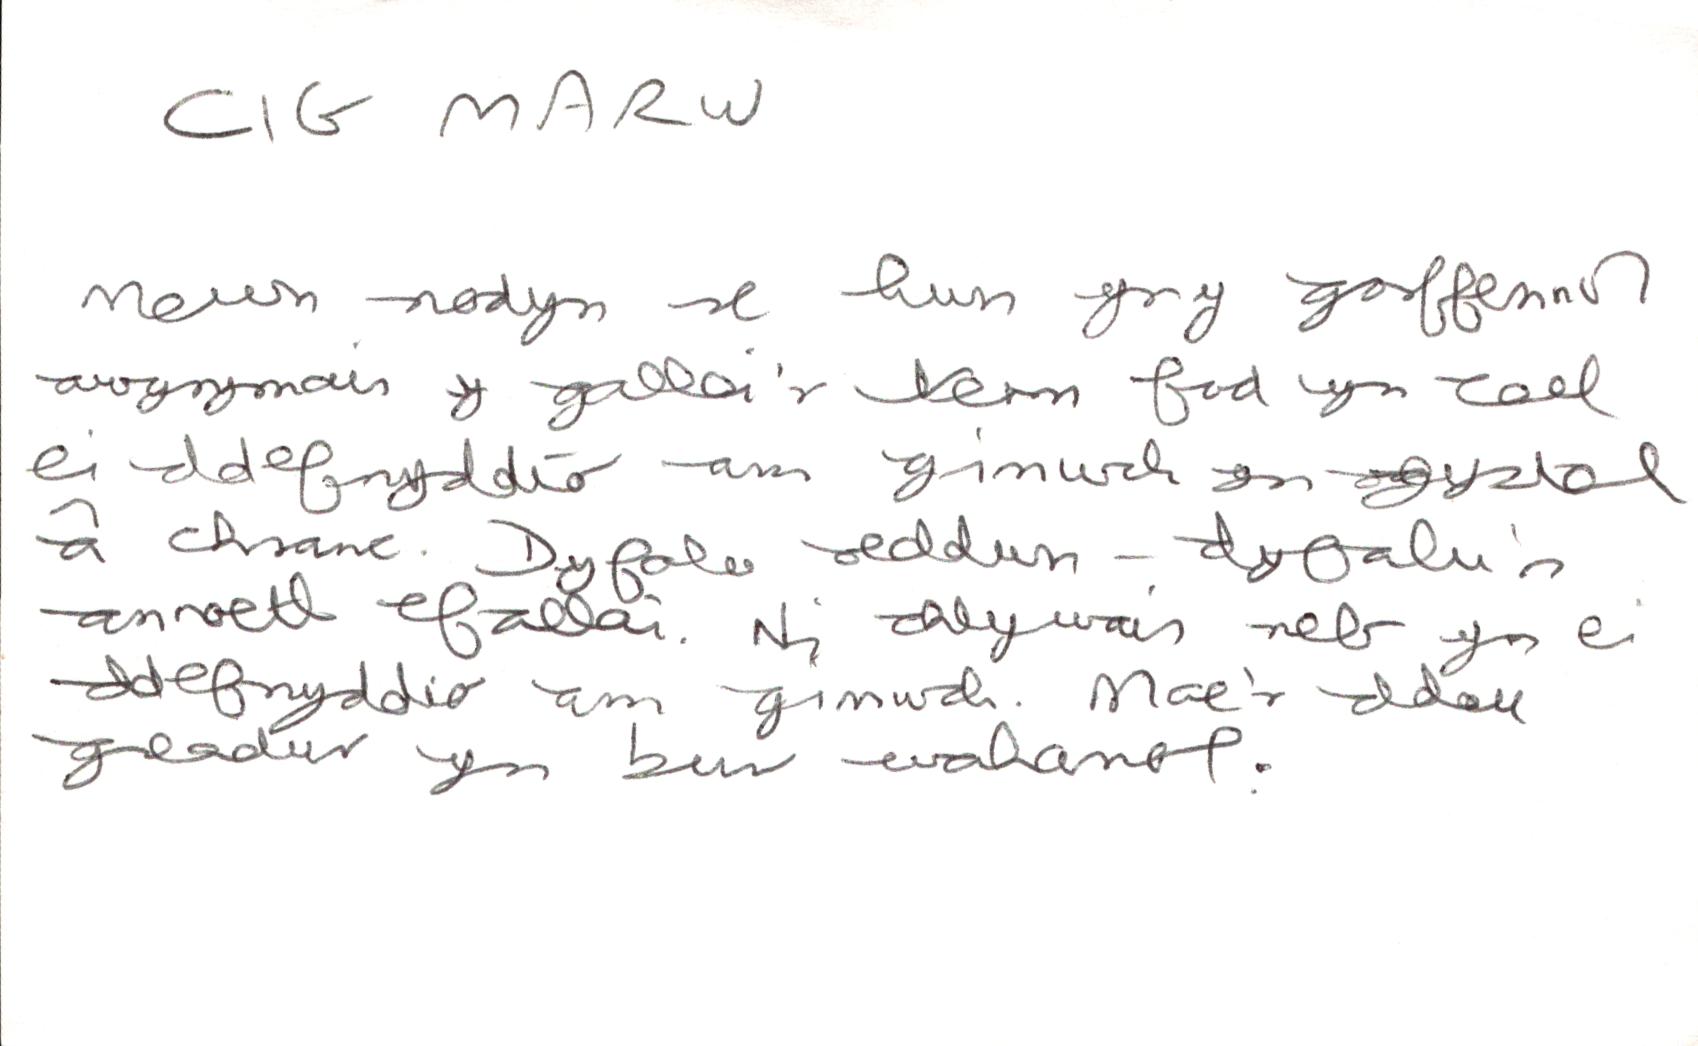 CIG MARW
Mewn nodyn hun yn y gorffennol
awgrymais y gallai'r term fod yn cael
ei ddefnyddio am ginwch yn ogystal
â chranc. Dyfalu oeddwn - dyfalu'n
annoeth efallai. Ni chlywais neb yn ei
ddefnyddio am ginwch. Mae'r ddau
greadur yn bur wahanol.